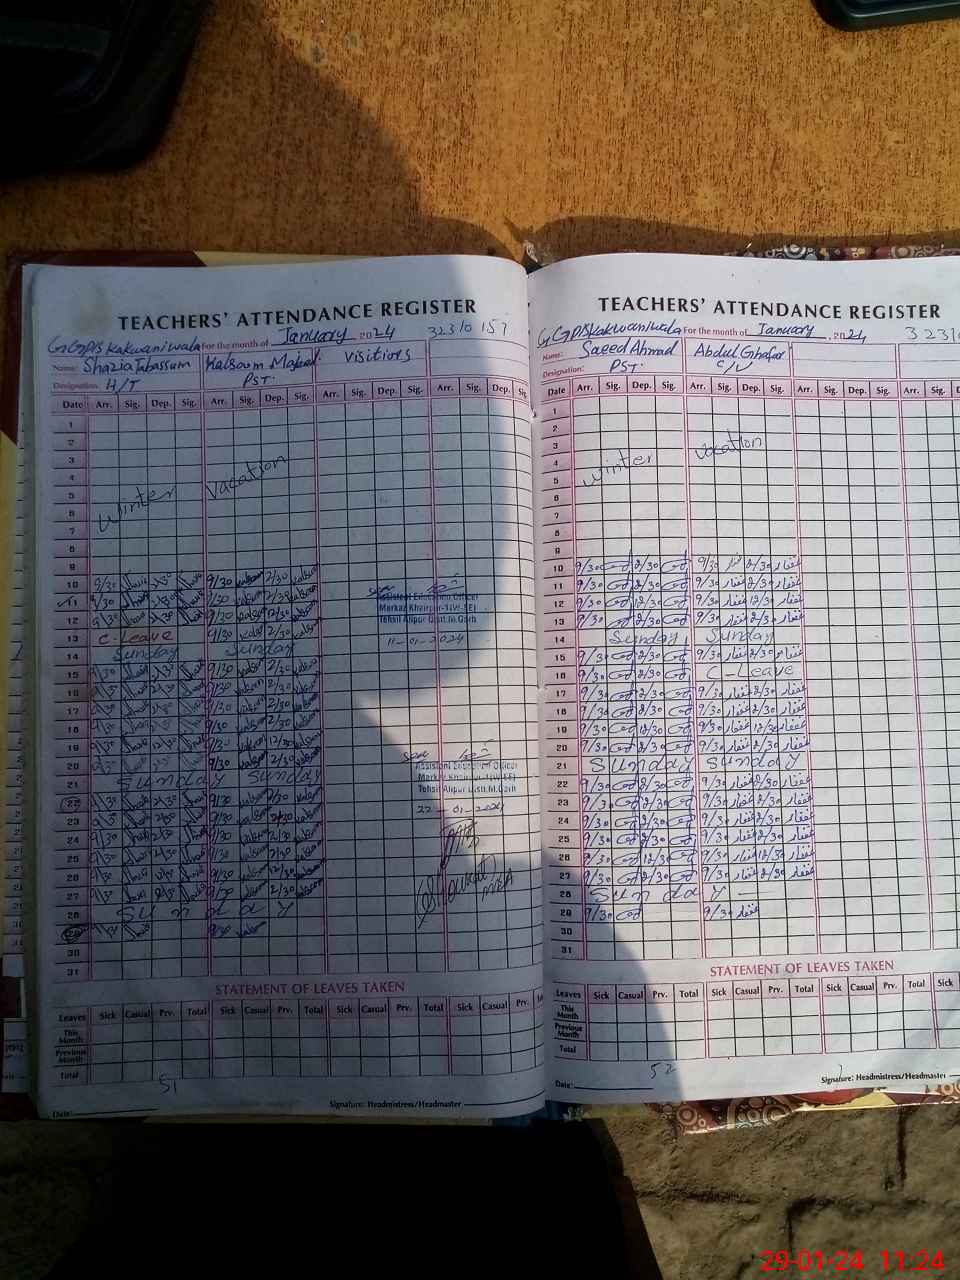 TEACHERS' ATTENDANCE REGISTER
GGPS Kakwaniwala For the month of January, 2024 32310157
Name: Shazia Tabassum Kalsoom Visitiors
Designation: H/T PST.
Date Arr. Sig. Dep. Sig. Arr. Sig. Dep. Sig. Arr. Sig. Dep. Sig. Arr. Sig. Dep. Sig.
1
2
3
4
5
6
7
8
9
Winter Vacation
10 9/30 2/30 9/30 Kalsoom 2/30 Kalsoom
11 9/30 2/30 9/30 Kalsoom 2/30 Kalsoom
12 9/30 12/30 9/30 Kalsoom 12/30 Kalsoom
Assistant Education Officer
Markaz Khairpur-1(W-EE)
Tehsil Alipur Distt.M.Garh
13 C-Leave 9/30 Kalsoom 2/30 Kalsoom
11-01-2024
14 Sunday Sunday
15 9/30 2/30 9/30 Kalsoom 2/30 Kalsoom
16 9/30 2/30 9/30 Kalsoom 2/30 Kalsoom
17 9/30 2/30 9/30 Kalsoom 2/30 Kalsoom
18 9/30 2/30 9/30 Kalsoom 2/30 Kalsoom
19 9/30 12/30 9/30 Kalsoom 12/30 Kalsoom
20 9/30 2/30 9/30 Kalsoom 2/30 Kalsoom
Assistant Education Officer
Markaz Khairpur-1(W-EE)
Tehsil Alipur Distt.M.Garh
21 Sunday Sunday
22 9/30 2/30 9/30 Kalsoom 2/30 Kalsoom
22-01-2024
23 9/30 2/30 9/30 Kalsoom 2/30 Kalsoom
24 9/30 2/30 9/30 Kalsoom 2/30 Kalsoom
25 9/30 2/30 9/30 Kalsoom 2/30 Kalsoom
26 9/30 12/30 9/30 Kalsoom 12/30 Kalsoom
27 9/30 2/30 9/30 2/30 Kalsoom
MEA
28 Sunday
29 9/30 Kalsoom
30
31
STATEMENT OF LEAVES TAKEN
Leaves Sick Casual Prv. Total Sick Casual Prv. Total Sick Casual Prv. Total Sick Casual Prv.
This Month
Previous Month
Total
51
Date: Signature: Headmistress/Headmaster
TEACHERS' ATTENDANCE REGISTER
GGPS Kakwaniwala For the month of January, 2024 3231
Name: Saeed Ahmad Abdul Ghafar
Designation: PST. C/V
Date Arr. Sig. Dep. Sig. Arr. Sig. Dep. Sig. Arr. Sig. Dep. Sig. Arr. Sig.
1
2
3
4
5
6
7
8
9
Winter Vacation
10 9/30 2/30 9/30 2/30 غفار
11 9/30 2/30 9/30 غفار 2/30 غفار
12 9/30 12/30 9/30 غفار 12/30 غفار
13 9/30 2/30 9/30 غفار 2/30 غفار
14 Sunday Sunday
15 9/30 2/30 9/30 غفار 2/30 غفار
16 9/30 2/30 C-Leave
17 9/30 2/30 9/30 غفار 2/30 غفار
18 9/30 2/30 9/30 غفار 2/30 غفار
19 9/30 12/30 9/30 غفار 12/30 غفار
20 9/30 2/30 9/30 غفار 2/30 غفار
21 Sunday Sunday
22 9/30 2/30 9/30 غفار 2/30 غفار
23 9/30 2/30 9/30 غفار 2/30 غفار
24 9/30 2/30 9/30 غفار 2/30 غفار
25 9/30 2/30 9/30 غفار 2/30 غفار
26 9/30 12/30 9/30 غفار 12/30 غفار
27 9/30 2/30 9/30 غفار 2/30 غفار
28 Sunday
29 9/30 9/30 غفار
30
31
STATEMENT OF LEAVES TAKEN
Leaves Sick Casual Prv. Total Sick Casual Prv. Total Sick Casual Prv. Total Sick
This Month
Previous Month
Total
52
Date: Signature: Headmistress/Headmaster
29-01-24 11:24